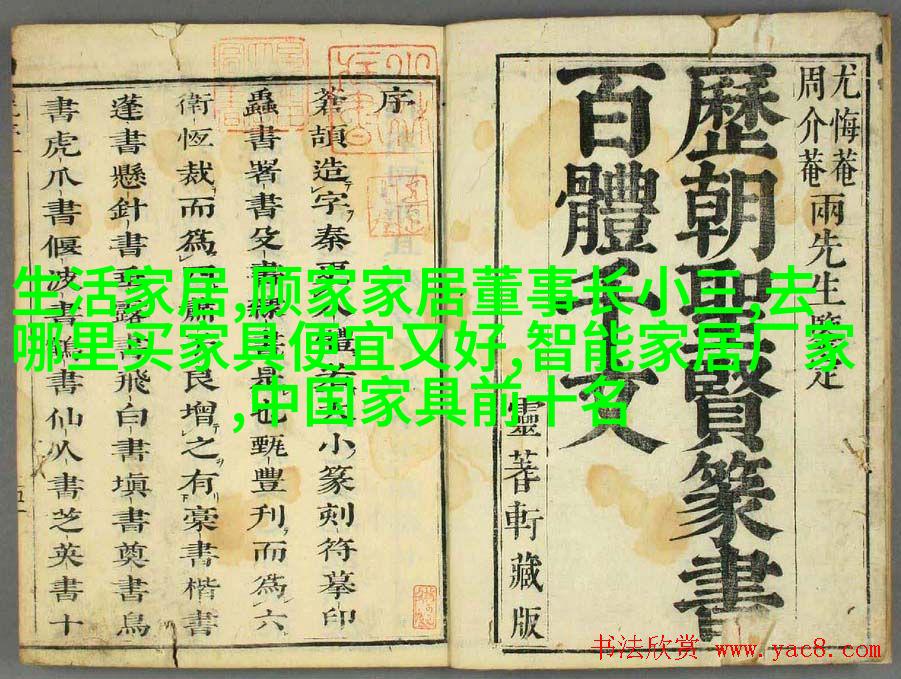 尤悔菴
周介菴
兩先生鑒定
歷朝聖賢篆書
百體千文
靈蓍軒藏版
序
蒼頡造字秦
小篆刻符摹印
蟲書署書殳書隸書是也甄豐刋而為六
衛恆裁而為
良增之有藁書楷書
蓬書懸針書垂露書飛白書塡書奠書鳥
書虎爪書偃波書鶴書仙人書芝英書十
生活家居,顾家家居董事长小三,去
哪里买家具便宜又好,智能家居厂家
,中国家具前十名
书法欣赏 www.yac8.com